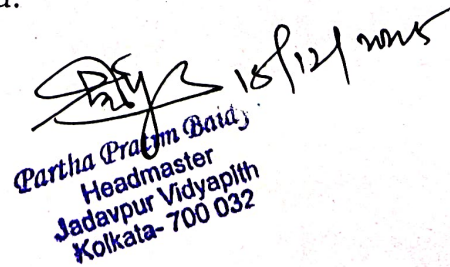 18/12/2025
Partha Pratim Baidy
Headmaster
Jadavpur Vidyapith
Kolkata- 700 032